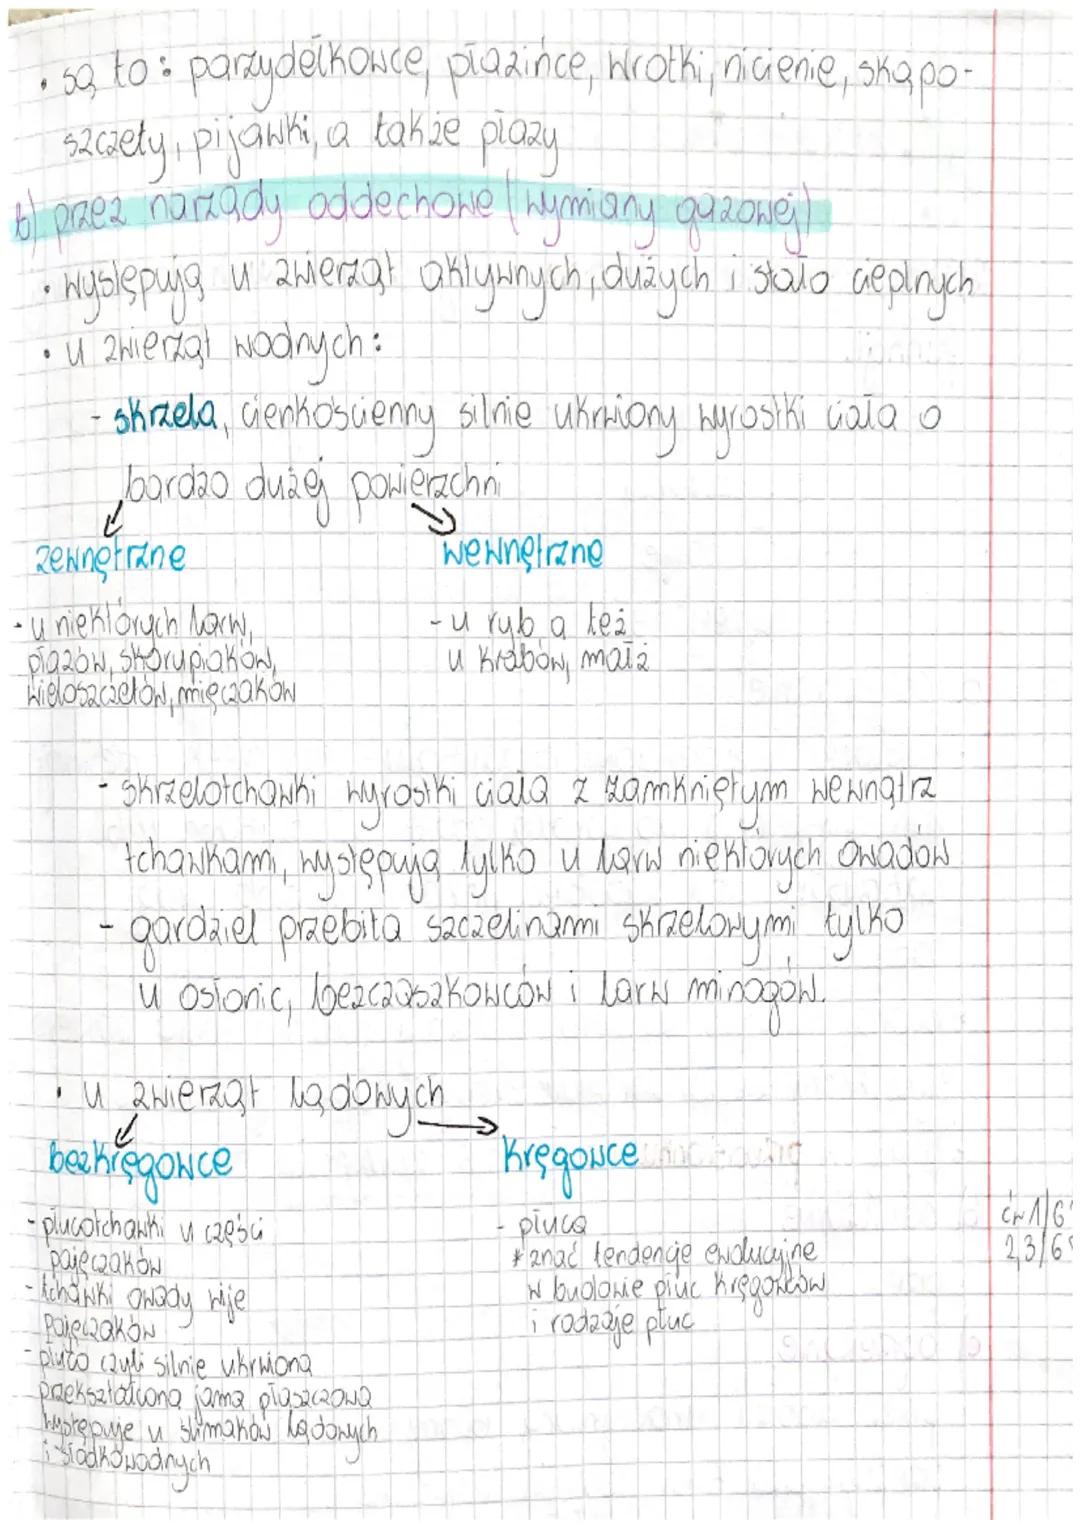 • są to: parzydełkowce, płazińce, wrotki, nicienie, skąpo-
szczety, pijawki, a także płazy
b) przez narządy oddechowe (wymiany gazowej)
• występują u zwierząt aktywnych, dużych i stało cieplnych
• u zwierząt wodnych:
- skrzela, cienkościenny silnie ukrwiony wyrostki ciała o
bardzo dużej powierzchni
zewnętrzne
wewnętrzne
- u niektórych larw,
płazów, skorupiaków,
wieloszczetów, mięczaków
- u ryb a też
u krabów, małż
- skrzelotchawki wyrostki ciała z zamkniętym wewnątrz
tchawkami, występują tylko u larw niektórych owadów
- gardziel przebita szczelinami skrzelowymi tylko
u osłonic, bezczaszkowców i larw minogów.
• u zwierząt lądowych
bezkręgowce
kręgowce
- płucotchawki u części
pajęczaków
- tchawki owady wije
pajęczaków
- płuco czyli silnie ukrwiona
przekształcona jama płaszczowa
występuje u ślimaków lądowych
i słodkowodnych
- płuca
* znać tendencje ewolucyjne
w budowie płuc kręgowców
i rodzaje płuc
ćw 1/6
2,3/6